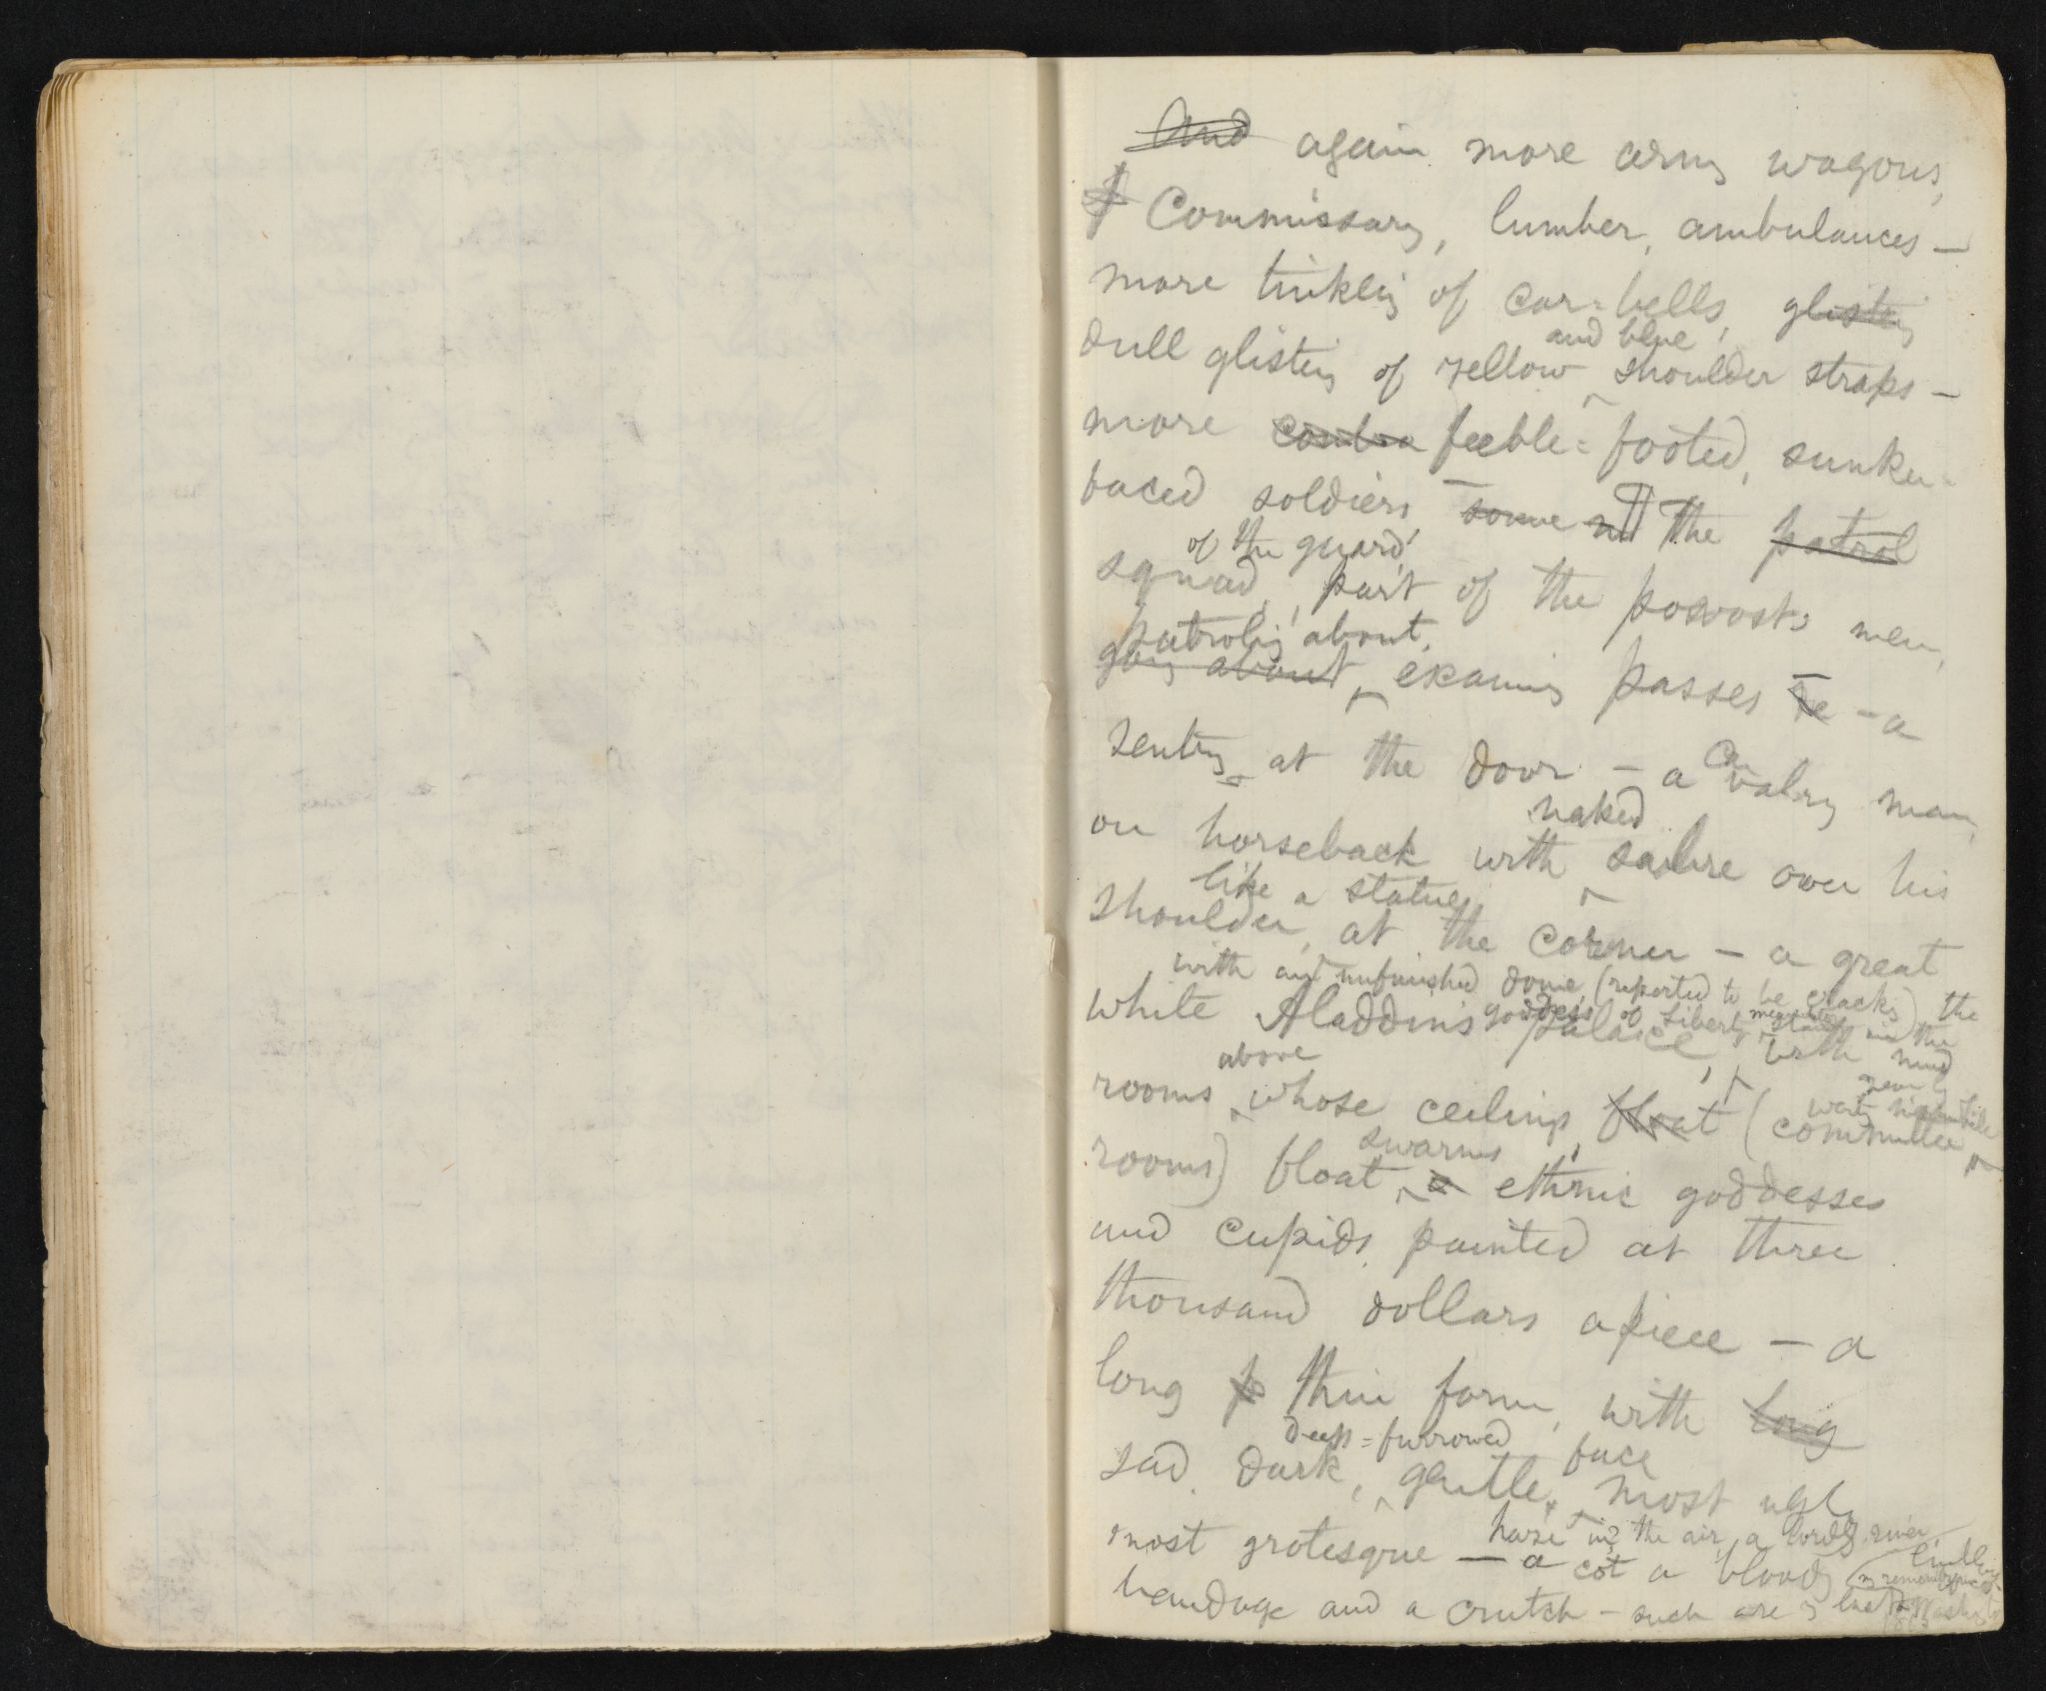 And again more army wagons,
Commissary, lumber, ambulances —
more tinkling of car-bells, glisteng
and blue
dull glisteng of yellow shoulder straps —
more feeble-footed, sunken-
faced soldiers — some The patrol
of the guard,
squad, part of the provost's men,
patrolig about,
going about examing passes — a
sentry at the door — a Cavalry man,
naked
on horseback with sabre over his
like a statue,
shoulder, at the corner — a great
with an unfinished dome, (reported to be crackg) the
goddess of Liberty, meanwhile standg in the
mud
white Aladdin's palace, with
above
nearly
rooms whose ceilings, float (committee
swarms
rooms) float, a ethnic goddesses
and cupids, painted at three
thousand dollars apiece — a
long thin form, with long
deep-furrowed face
sad, dark, gentle, most ugly
haze in the air, a lordly river
most grotesque — a cot a bloody
my remembrances
bandage and a crutch — such are